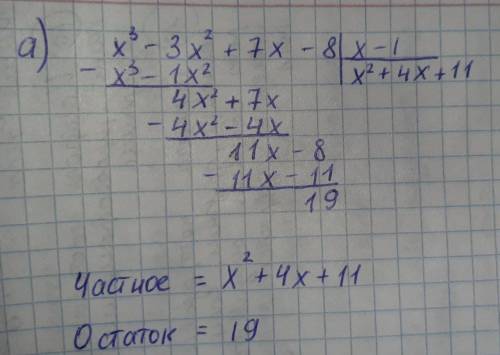 а) x³ - 3x² + 7x - 8 | x - 1
- x³ - 1x² | x² + 4x + 11
4x² + 7x
- 4x² - 4x
11x - 8
- 11x - 11
19
Частное = x² + 4x + 11
Остаток = 19